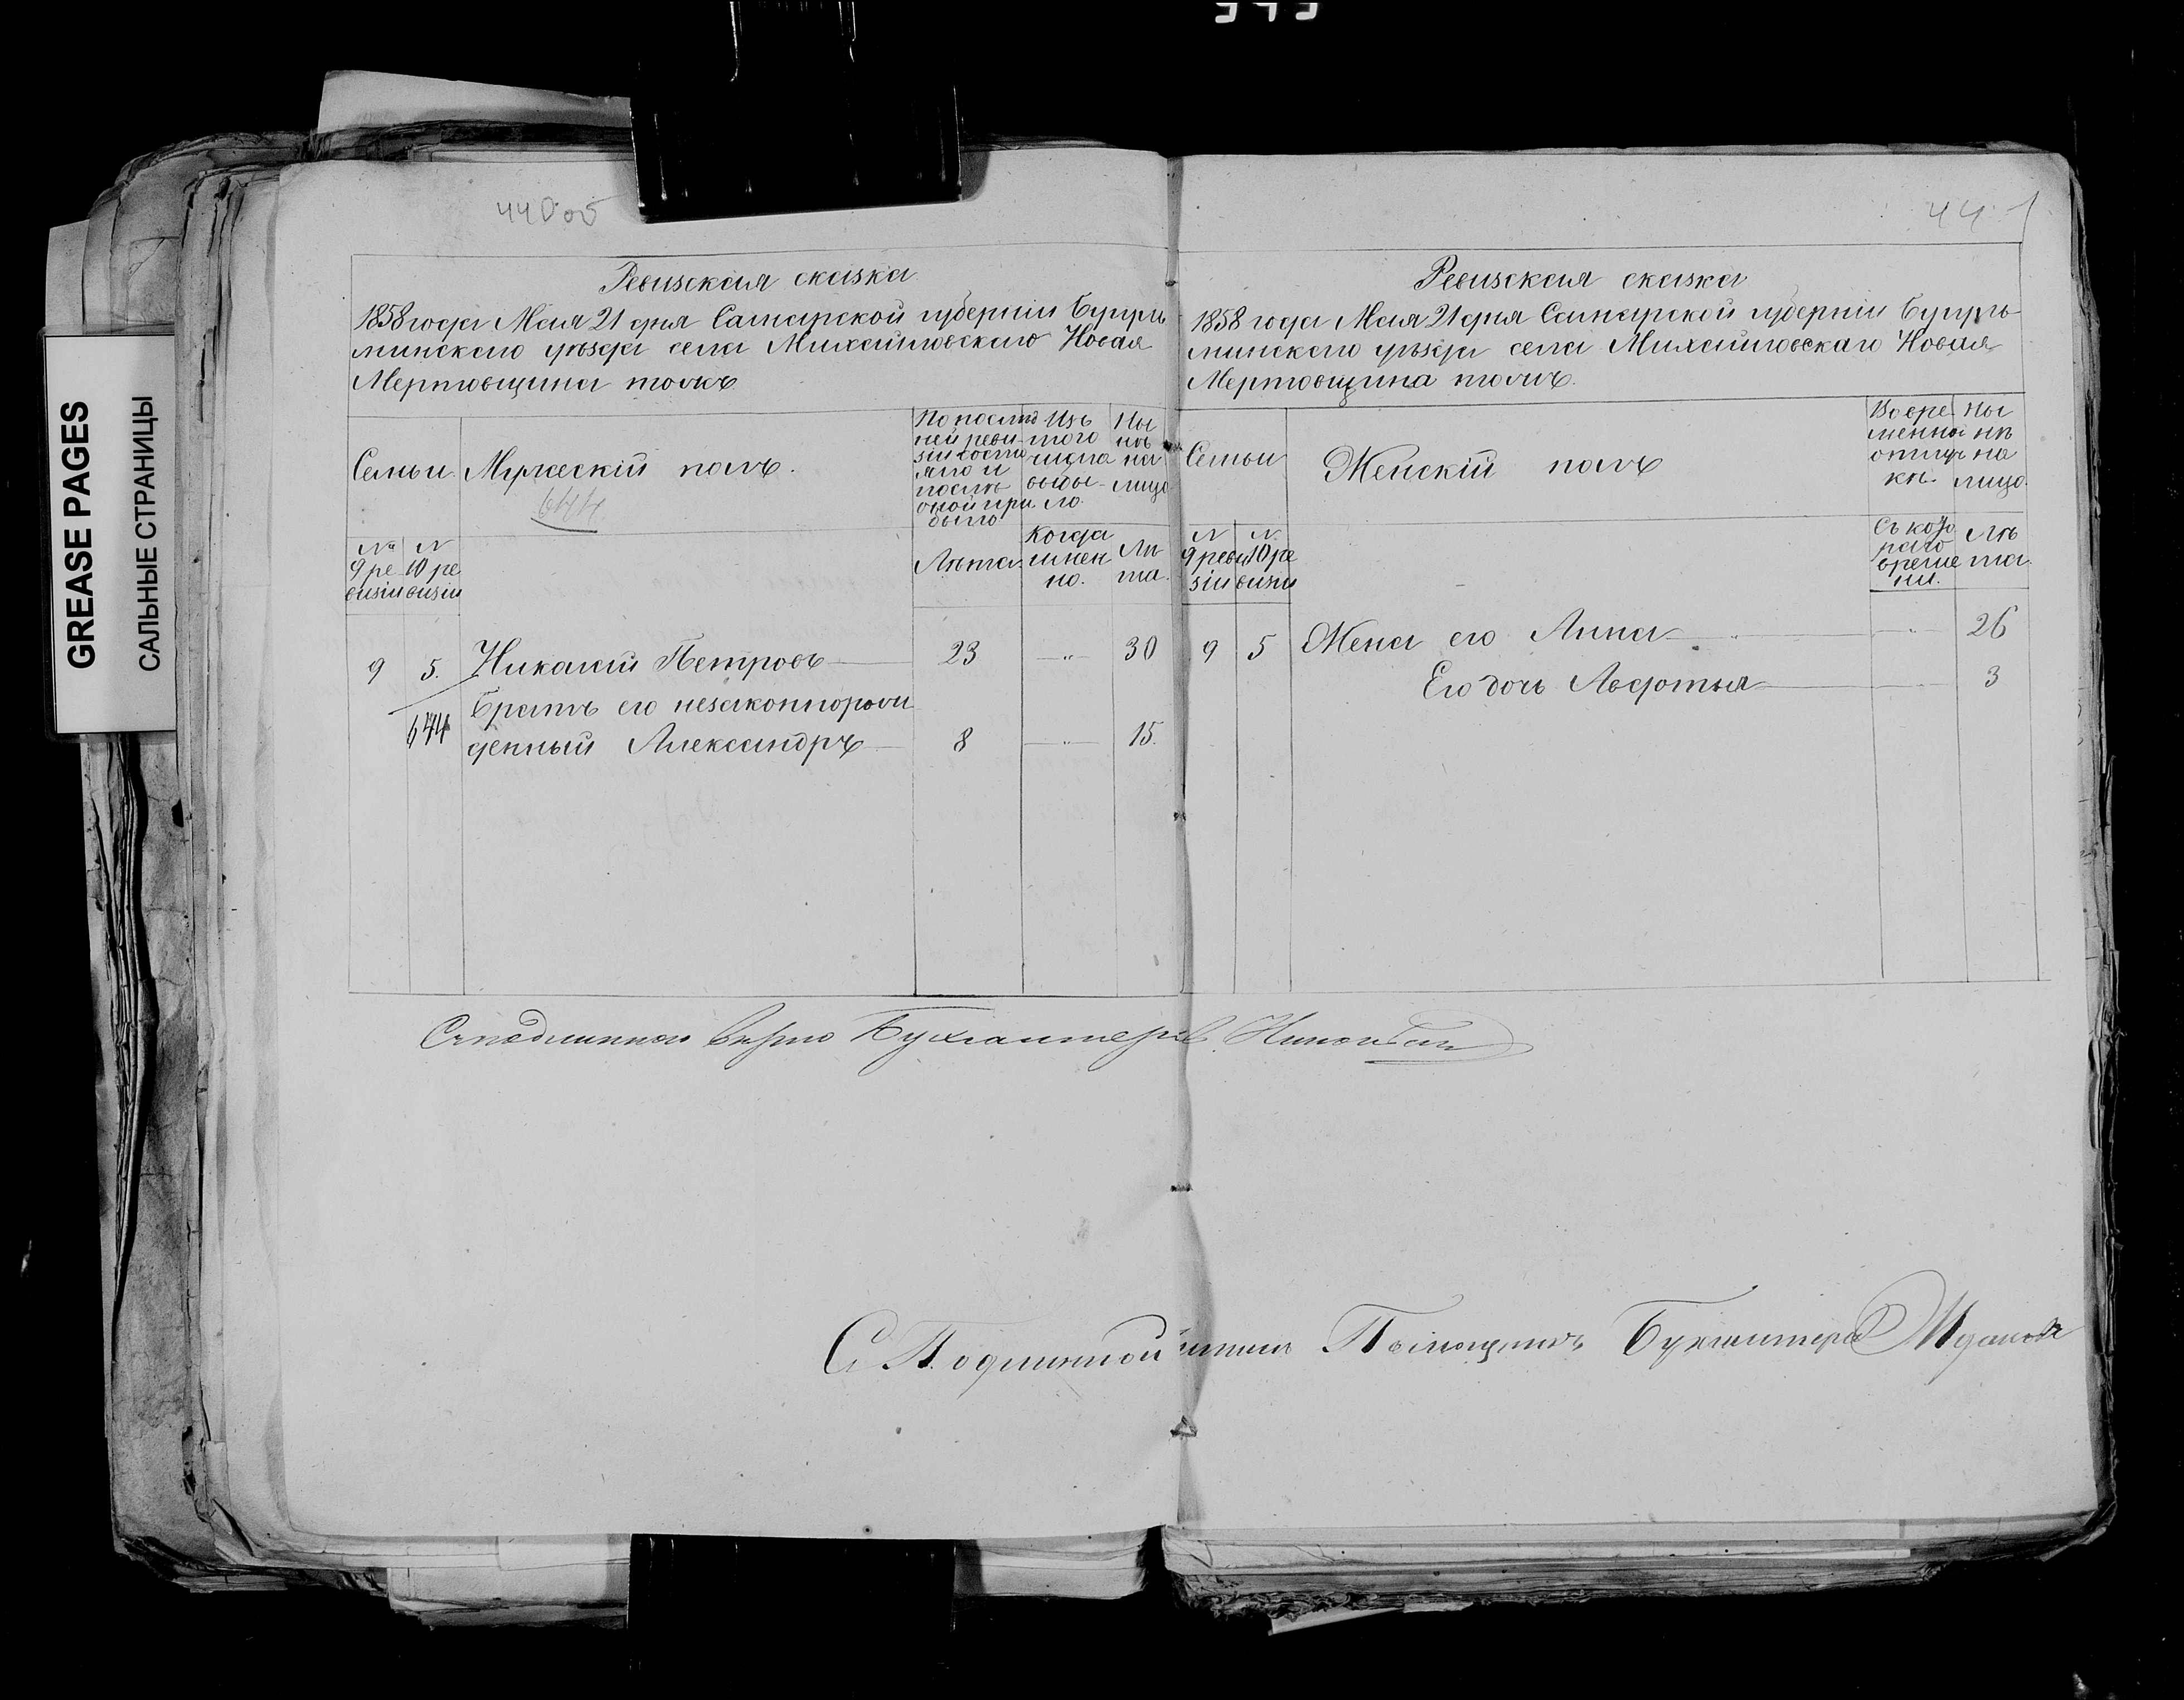 GREASE PAGES
САЛЬНЫЕ СТРАНИЦЫ
440 об
Ревизская сказка
1858 года Мая 21 дня Самарской губернiи Бугуль
минскаго уѣзда села Михайловскаго Новая
Мертовщина тожъ
Семьи
Мужескiй полъ.
644
По послѣд
ней реви-
зiи состо
яло и
послѣ
оной при
было
Изъ
того
числа
выбы-
ло
Ны
нѣ
на
лицо
№
9 ре
визiи
№
10 ре
визiи
Лѣта
Когда
имен
но.
Лѣ
та.
9 5. Николай Петровъ 23 — „ — 30
Братъ его незаконнорож
644 денный Александръ 8 — „ — 15.
441
Ревизская сказка
1858 года Мая 21 дня Самарской губернiи Бугуль-
минскаго уѣзда села Михайловскаго Новая
Мертовщина тожъ.
Семьи
Женскiй полъ
Во вре
менной
отлуч
кѣ.
Ны
нѣ
на
лицо.
№
9 реви
зiи
№
10 ре
визiи
Съ кото
раго
време
ни.
Лѣ
та.
9 5 Жена его Анна — „ — 26
Его дочь Авдотья 3
Съ подлиннымъ вѣрно Бухгалтеръ
С Подлинной Помощникъ Бухгалтера